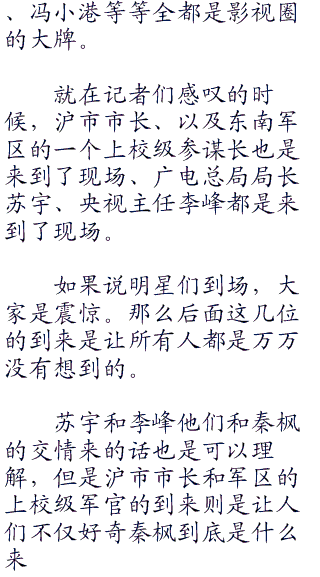 、冯小港等等全都是影视圈
的大牌。
就在记者们感叹的时
候，沪市市长、以及东南军
区的一个上校级参谋长也是
来到了现场、广电总局局长
苏宇、央视主任李峰都是来
到了现场。
如果说明星们到场，大
家是震惊。那么后面这几位
的到来是让所有人都是万万
没有想到的。
苏宇和李峰他们和秦枫
的交情来的话也是可以理
解，但是沪市市长和军区的
上校级军官的到来则是让人
们不仅好奇秦枫到底是什么
来